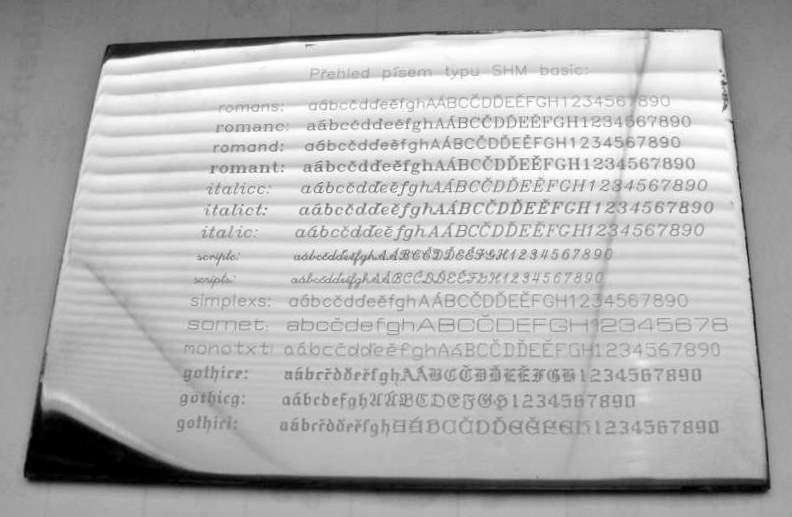 Přehled písem typu SHM basic:
romans: aábcčdďeěfghAÁBCČDĎEĚFGH1234567890
romanc: aábcčdďeěfghAÁBCČDĎEĚFGH1234567890
romand: aábcčdďeěfghAÁBCČDĎEĚFGH1234567890
romant: aábcčdďeěfghAÁBCČDĎEĚFGH1234567890
italicc: aábcčdďeěfghAÁBCČDĎEĚFGH1234567890
italict: aábcčdďeěfghAÁBCČDĎEĚFGH1234567890
italic: aábcčdďeěfghAÁBCČDĎEĚFGH1234567890
scriptc: aábcčdďeěfghAÁBCČDĎEĚFGH1234567890
scripts: aábcčdďeěfghAÁBCČDĎEĚFGH1234567890
simplexs: aábcčdďeěfghAÁBCČDĎEĚFGH1234567890
somet: abcčdefghABCČDEFGH12345678
monotxt: aábcčdďeěfghAÁBCČDĎEĚFGH1234567890
gothice: aábcčdďeěfghAÁBCČDĎEĚFGH1234567890
gothicg: aábcdefghAÁBCDEFGH1234567890
gothici: aábcčdďeěfghAÁBCČDĎEĚFGH1234567890